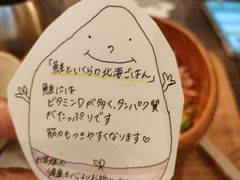 「鮭といくらの北海ごはん」
鮭には
ビタミンDが多く、タンパク質
がたっぷりです
筋力もつきやすくなります♡
お客様の
健康を心よりお祈り